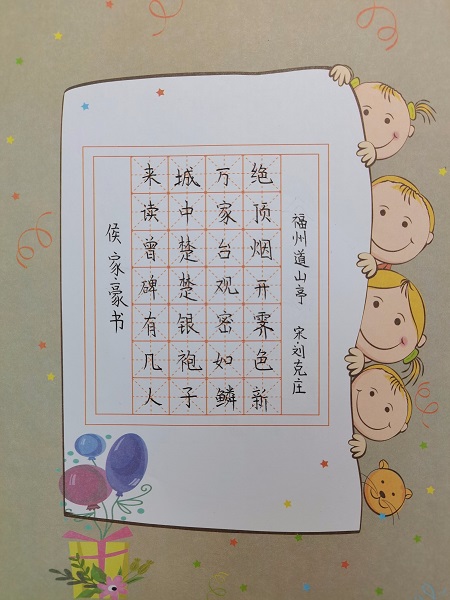 福州道山亭 宋·刘克庄
绝顶烟开霁色新
万家台观密如鳞
城中楚楚银袍子
来读曾碑有几人
侯家豪书